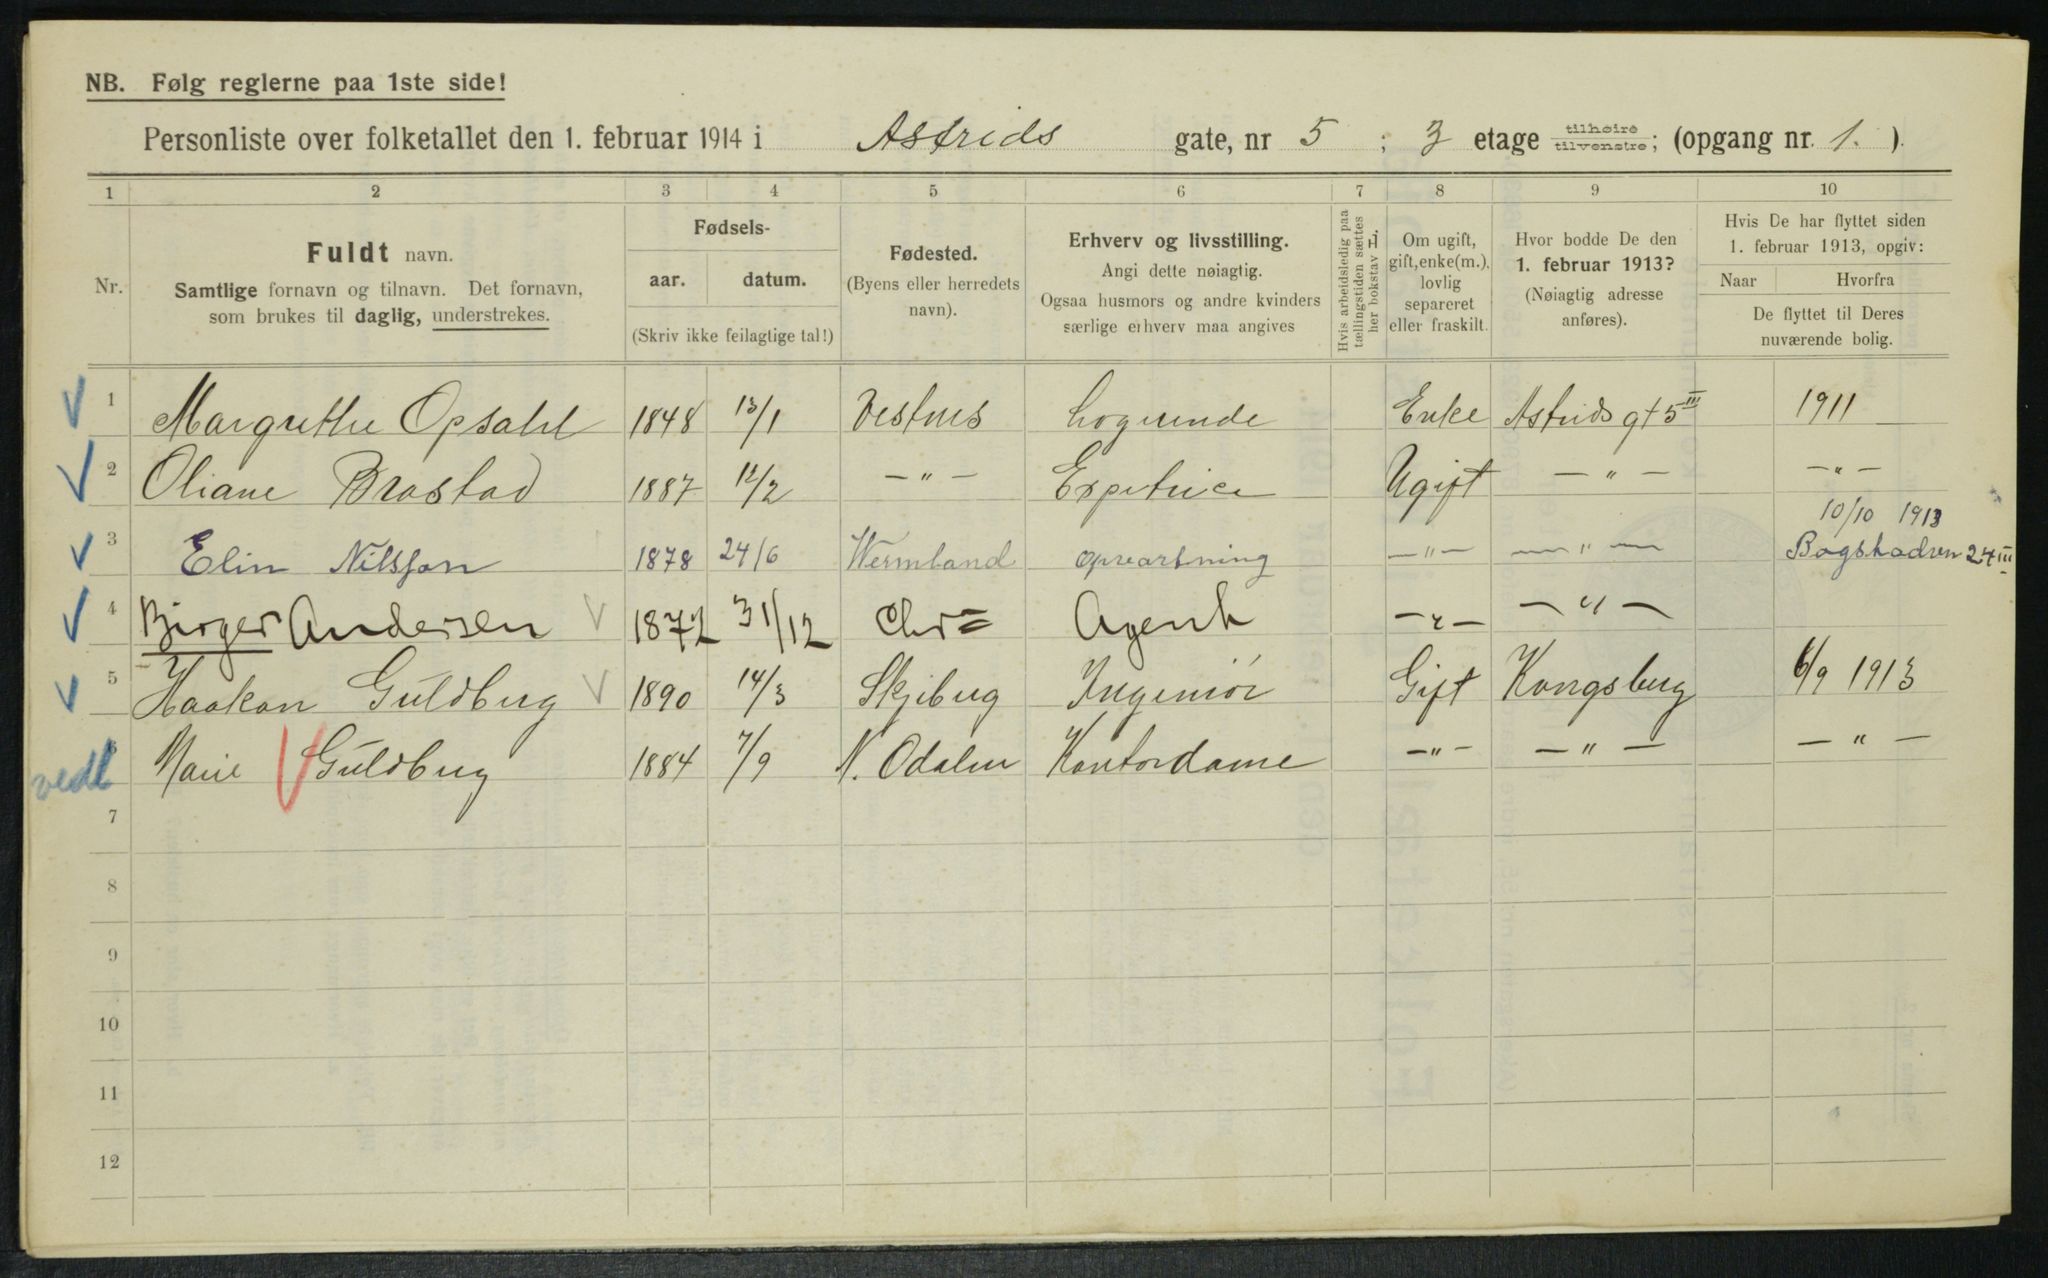 NB. Følg reglerne paa 1ste side!
Personliste over folketallet den 1. februar 1914 i Astrids gate, nr 5 ; 3 etage tilhøire tilvenstre; (opgang nr. 1. ).
1 2 3 4 5 6 7 8 9 10
Nr.
Fuldt navn.
Samtlige fornavn og tilnavn. Det fornavn,
som brukes til daglig, understrekes.
Fødsels-
aar. datum.
(Skriv ikke feilagtige tal!)
Fødested.
(Byens eller herredets
navn).
Erhverv og livsstilling.
Angi dette nøiagtig.
Ogsaa husmors og andre kvinders
særlige erhverv maa angives
Hvis arbeidsledig paa
tællingstiden sættes
her bokstav L.
Om ugift,
gift, enke(m.),
lovlig
separeret
eller fraskilt.
Hvor bodde De den
1. februar 1913?
(Nøiagtig adresse
anføres).
Hvis De har flyttet siden
1. februar 1913, opgiv:
Naar Hvorfra
De flyttet til Deres
nuværende bolig.
1 Margrethe Opsahl 1848 13/1 Vestnes Enke Astrids gt 5 III 1911
2 Oliane Brastad 1887 12/2 — " — Expetrice Ugift — " — — " —
10/10 1913
3 Elin Nilsson 1878 24/6 Wermland opvartning — " — — " — Bogstadven 24 III
4 Birger Andersen 1872 31/12 Chr= Agent — " — — " —
5 Haakon Guldberg 1890 14/3 Skjiberg Ingeniör Gift Kongsberg 6/9 1913
6 Marie Guldberg 1884 7/9 N. Odalen Kontordame — " — — " — — " —
vedl
7
8
9
10
11
12